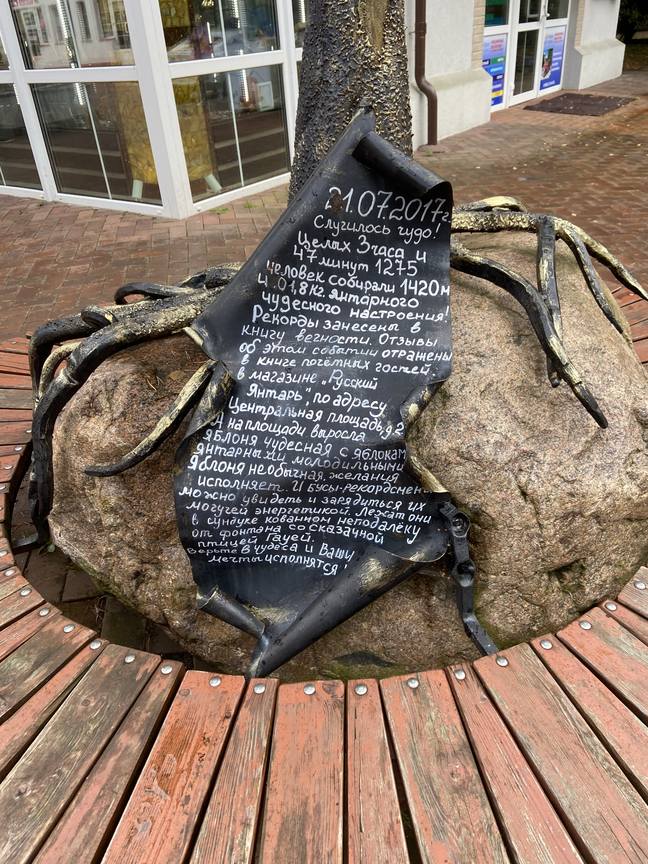 21.07.2017г.
Случилось чудо!
Целых 3 часа и
47 минут 1275
человек собирали 1420м
и 01,8кг. янтарного
чудесного настроения!
Рекорды занесены в
книгу вечности. Отзывы
об этом событии отражены
в книге почётных гостей.
в магазине „Русский
Янтарь", по адресу
Центральная площадь,д2
А на площади выросла
яблоня чудесная с яблоками
янтарными, молодильными
Яблоня необычная, желания
исполняет. И бусы-рекордсмены
можно увидеть и зарядиться их
могучей энергетикой. Лежат они
в сундуке кованном неподалёку
от фонтана со сказачной
птицей Гауей.
Верьте в чудеса и Ваши
мечты исполнятся!